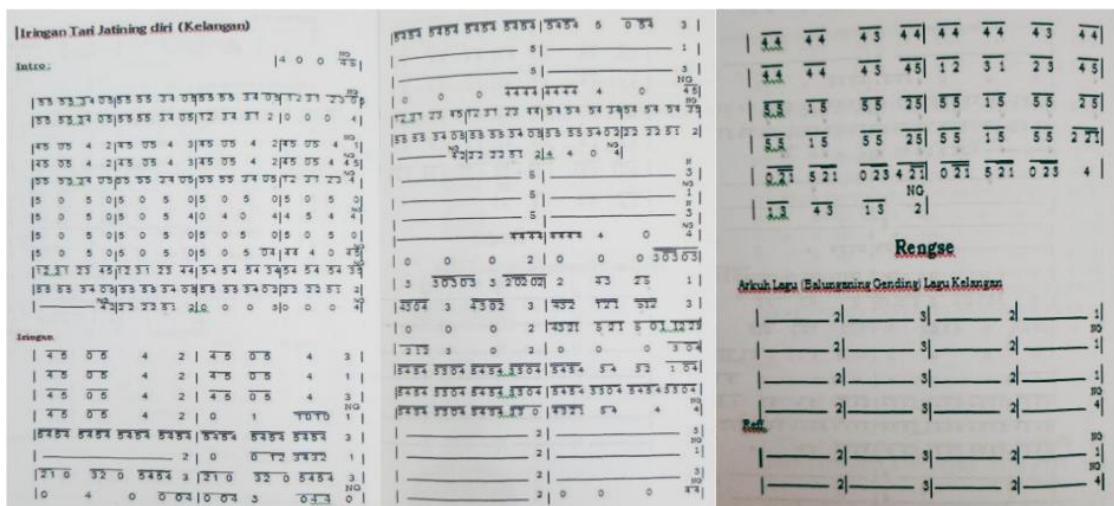 Iringan Tari Jatining diri (Kelangan)
NG
Intro: |4 0 0 45|
NG
|55 55 34 05|55 55 34 05|55 55 34 05|12 31 23 05
55 55 34 05|55 55 34 05|12 34 31 2|0 0 0 4|
NG
|45 05 4 2|45 05 4 3|45 05 4 2|45 05 4 1|
NG
|45 05 4 2|45 05 4 3|45 05 4 2|45 05 4 45|
NG
|55 55 34 05|55 55 34 05|55 55 34 05|12 31 23 4
|5 0 5 0|5 0 5 0|5 0 5 0|5 0 5 0|
NG
|5 0 5 0|5 0 5 4|0 4 0 4|4 5 4 4|
|5 0 5 0|5 0 5 0|5 0 5 0|5 0 5 0|
NG
|5 0 5 0|5 0 5 0|5 0 5 04|44 4 0 45|
NG
|12 31 23 45|12 31 23 44|54 54 54 34|54 54 54 35
|55 55 34 05|55 55 34 05|55 55 34 02|22 22 51 2|
NG NG
42|22 22 51 2|0 0 0 3|0 0 0 4|
Iringan
|45 05 4 2|45 05 4 3|
|45 05 4 2|45 05 4 1|
|45 05 4 2|45 05 4 3|
NG
|45 05 4 2|0 1 1010 1|
|5454 5454 5454 5454|5454 5454 5454 3|
2|0 0 12 3432 1|
|21 0 32 0 5454 3|21 0 32 0 5454 3|
NG
|0 4 0 0 04|0 04 3 044 0|
|5454 5454 5454 5454|5454 5 0 54 3|
5| 1|
5| 3|
NG
0 0 0 4444|4444 4 0 45|
NG
12 31 23 45|12 31 23 44|54 54 54 34|54 54 54 35
|55 55 34 05|55 55 34 05|55 55 34 02|22 22 51 2|
NG NG
42|22 22 51 2|4 4 0 4|
5| 3|
NG
5| 1|
5| 3|
NG
4444|4444 4 0 4|
0 0 0 2|0 0 0 30303|
3 30303 3 20202|2 43 25 1|
|4304 3 4302 3|432 121 512 3|
|0 0 0 2|4321 5 21 5 01 1223|
|212 3 0 2|0 0 0 3 04|
|5454 3304 5454 3304|5454 54 52 1 04|
|5454 3304 5454 3304|5454 3304 5454 3304|
NG
|5454 3304 5454 33 0|4321 54 4 4|
2| 3|
NG
2| 1|
2| 3|
NG
2|0 0 0 44|
|44 44 43 44|44 44 43 44|
|44 44 43 45|12 31 23 45|
|55 15 55 25|55 15 55 25|
|55 15 55 25|55 15 55 2 21|
|0 21 5 21 0 23 4 21|0 21 5 21 0 23 4|
NG
|13 43 13 2|
Rengse
Arkuh Lagu (Balunganing Gending) Lagu Kelangan
| 2| 3| 2| 1|
NG
| 2| 3| 2| 1|
| 2| 3| 2| 1|
NG
| 2| 3| 2| 4|
Reff
NG
| 2| 3| 2| 1|
NG
| 2| 3| 2| 4|